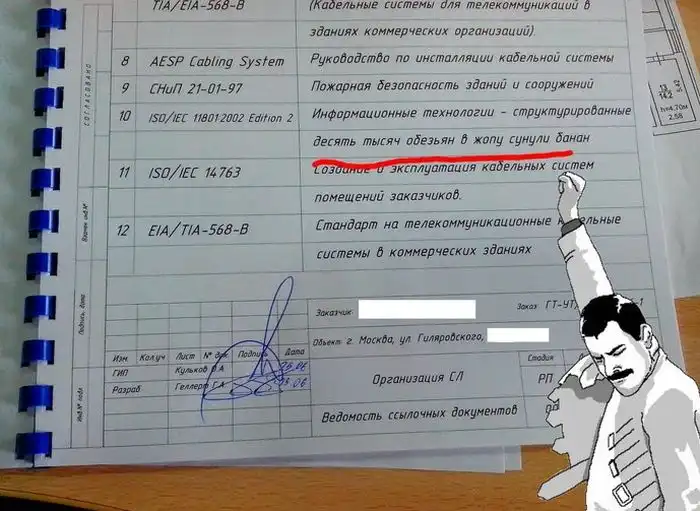 TIA/EIA-568-B (Кабельные системы для телекоммуникаций в
зданиях коммерческих организаций).
8 AESP Cabling System Руководство по инсталляции кабельной системы
9 СНиП 21-01-97 Пожарная безопасность зданий и сооружений
10 ISO/IEC 11801:2002 Edition 2 Информационные технологии - структурированные
десять тысяч обезьян в жопу сунули банан
11 ISO/IEC 14763 Создание и эксплуатация кабельных систем
помещений заказчиков.
12 EIA/TIA-568-B Стандарт на телекоммуникационные кабельные
системы в коммерческих зданиях
СОГЛАСОВАНО
Взамен инв.№
Подпись, дата
Инв.№ подл.
Заказчик: Заказ ГТ-УТ
Объект: г. Москва, ул. Гиляровского,
Изм. Кол.уч Лист № док. Подпись Дата
ГИП Кульков
Разраб Геллерт Г.А.
Организация СЛ
Стадия
РП
Ведомость ссылочных документов
13
14.2
5.42
h=4.70м
2.58